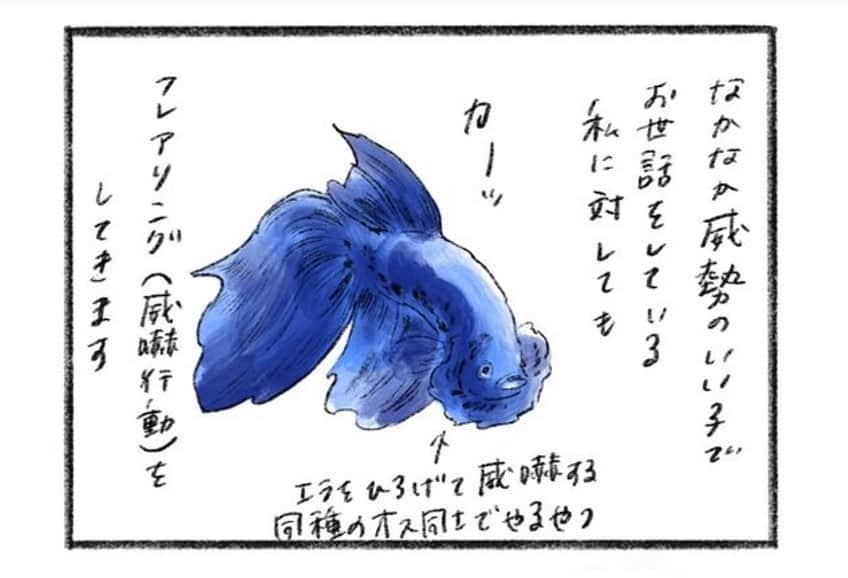 なかなか威勢のいい子で
お世話をしている
私に対しても
カーッ
フレアリング(威嚇行動)を
してきます
↑
エラをひろげて威嚇する
同種のオス同士でやるやつ